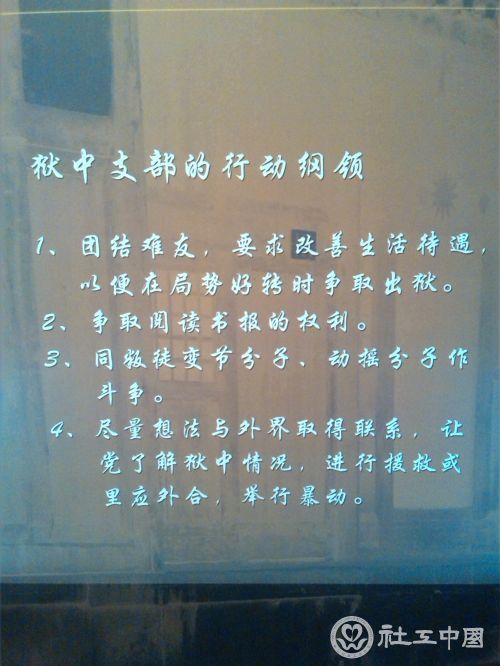 狱中支部的行动纲领
1、团结难友，要求改善生活待遇，
以便在局势好转时争取出狱。
2、争取阅读书报的权利。
3、同叛徒变节分子、动摇分子作
斗争。
4、尽量想法与外界取得联系，让
党了解狱中情况，进行援救或
里应外合，举行暴动。
社工中國